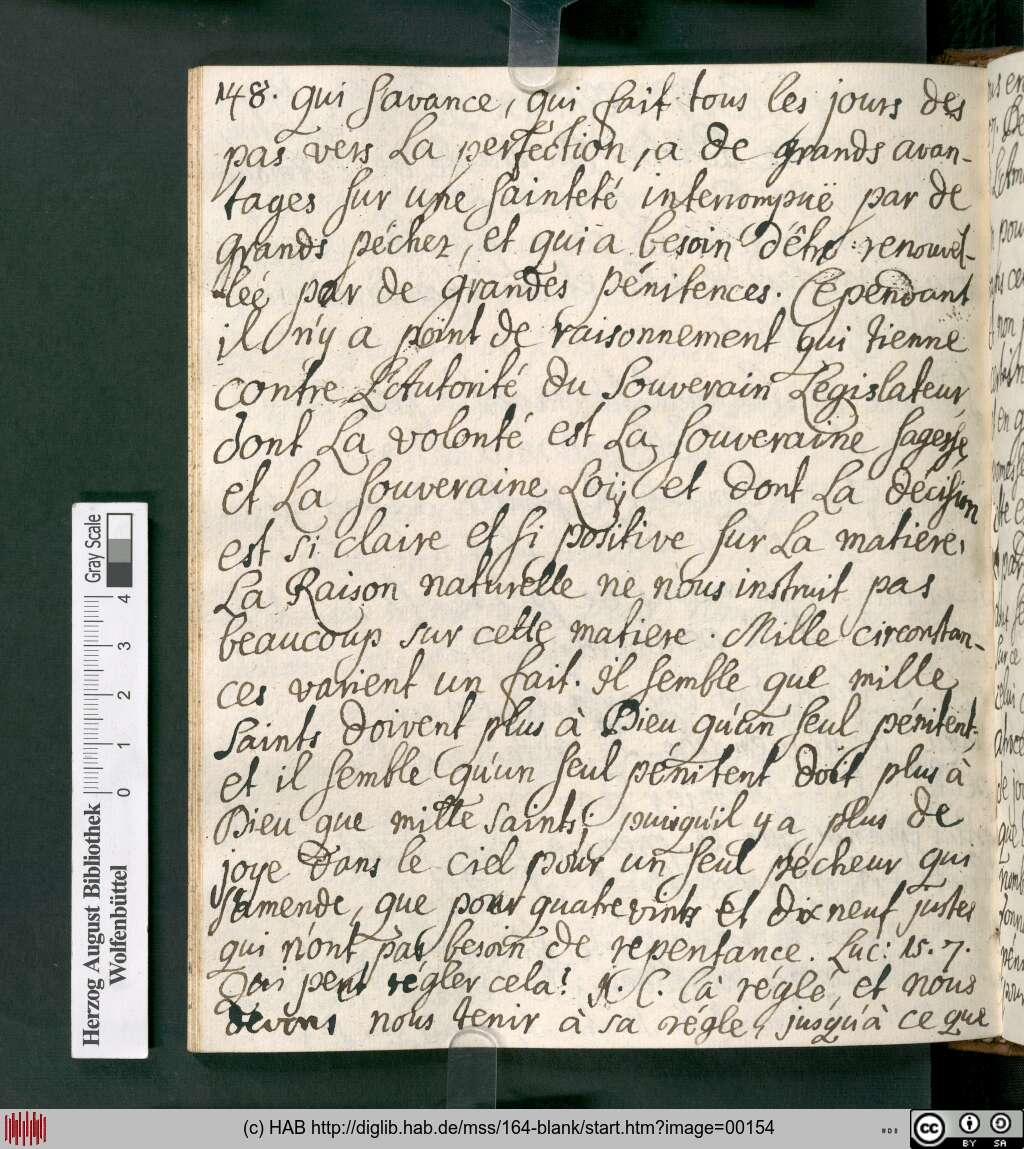 148. qui s'avance, qui fait tous les jours des
pas vers La perfection, a de grands avan-
tages sur une sainteté interrompuë par de
grands péchez, et qui a besoin d'être renouvel-
lée par de grandes pénitences. Cependant
il n'y a point de raisonnement qui tienne
contre L'Autorité du Souverain Législateur,
dont La volonté est La souveraine sagesse,
et La souveraine Loi; et dont La decision
est si claire et si positive sur La matiere.
La Raison naturelle ne nous instruit pas
beaucoup sur cette matiere. Mille circonstan-
ces varient un fait. Il semble que mille
saints doivent plus à Dieu qu'un seul pénitent;
et il semble qu'un seul pénitent doit plus à
Dieu que mille saints; puisqu'il y a plus de
joye dans le ciel pour un seul pécheur qui
s'amende, que pour quatrevints et dix neuf justes
qui n'ont pas besoin de repentance. Luc: 15. 7.
Qui peut régler cela? J. C. l'a réglé, et nous
devons nous tenir à sa régle, jusqu'à ce que
Herzog August Bibliothek
Wolfenbüttel
0 1 2 3 4
Gray Scale
HAB
(c) HAB http://diglib.hab.de/mss/164-blank/start.htm?image=00154
cc BY SA